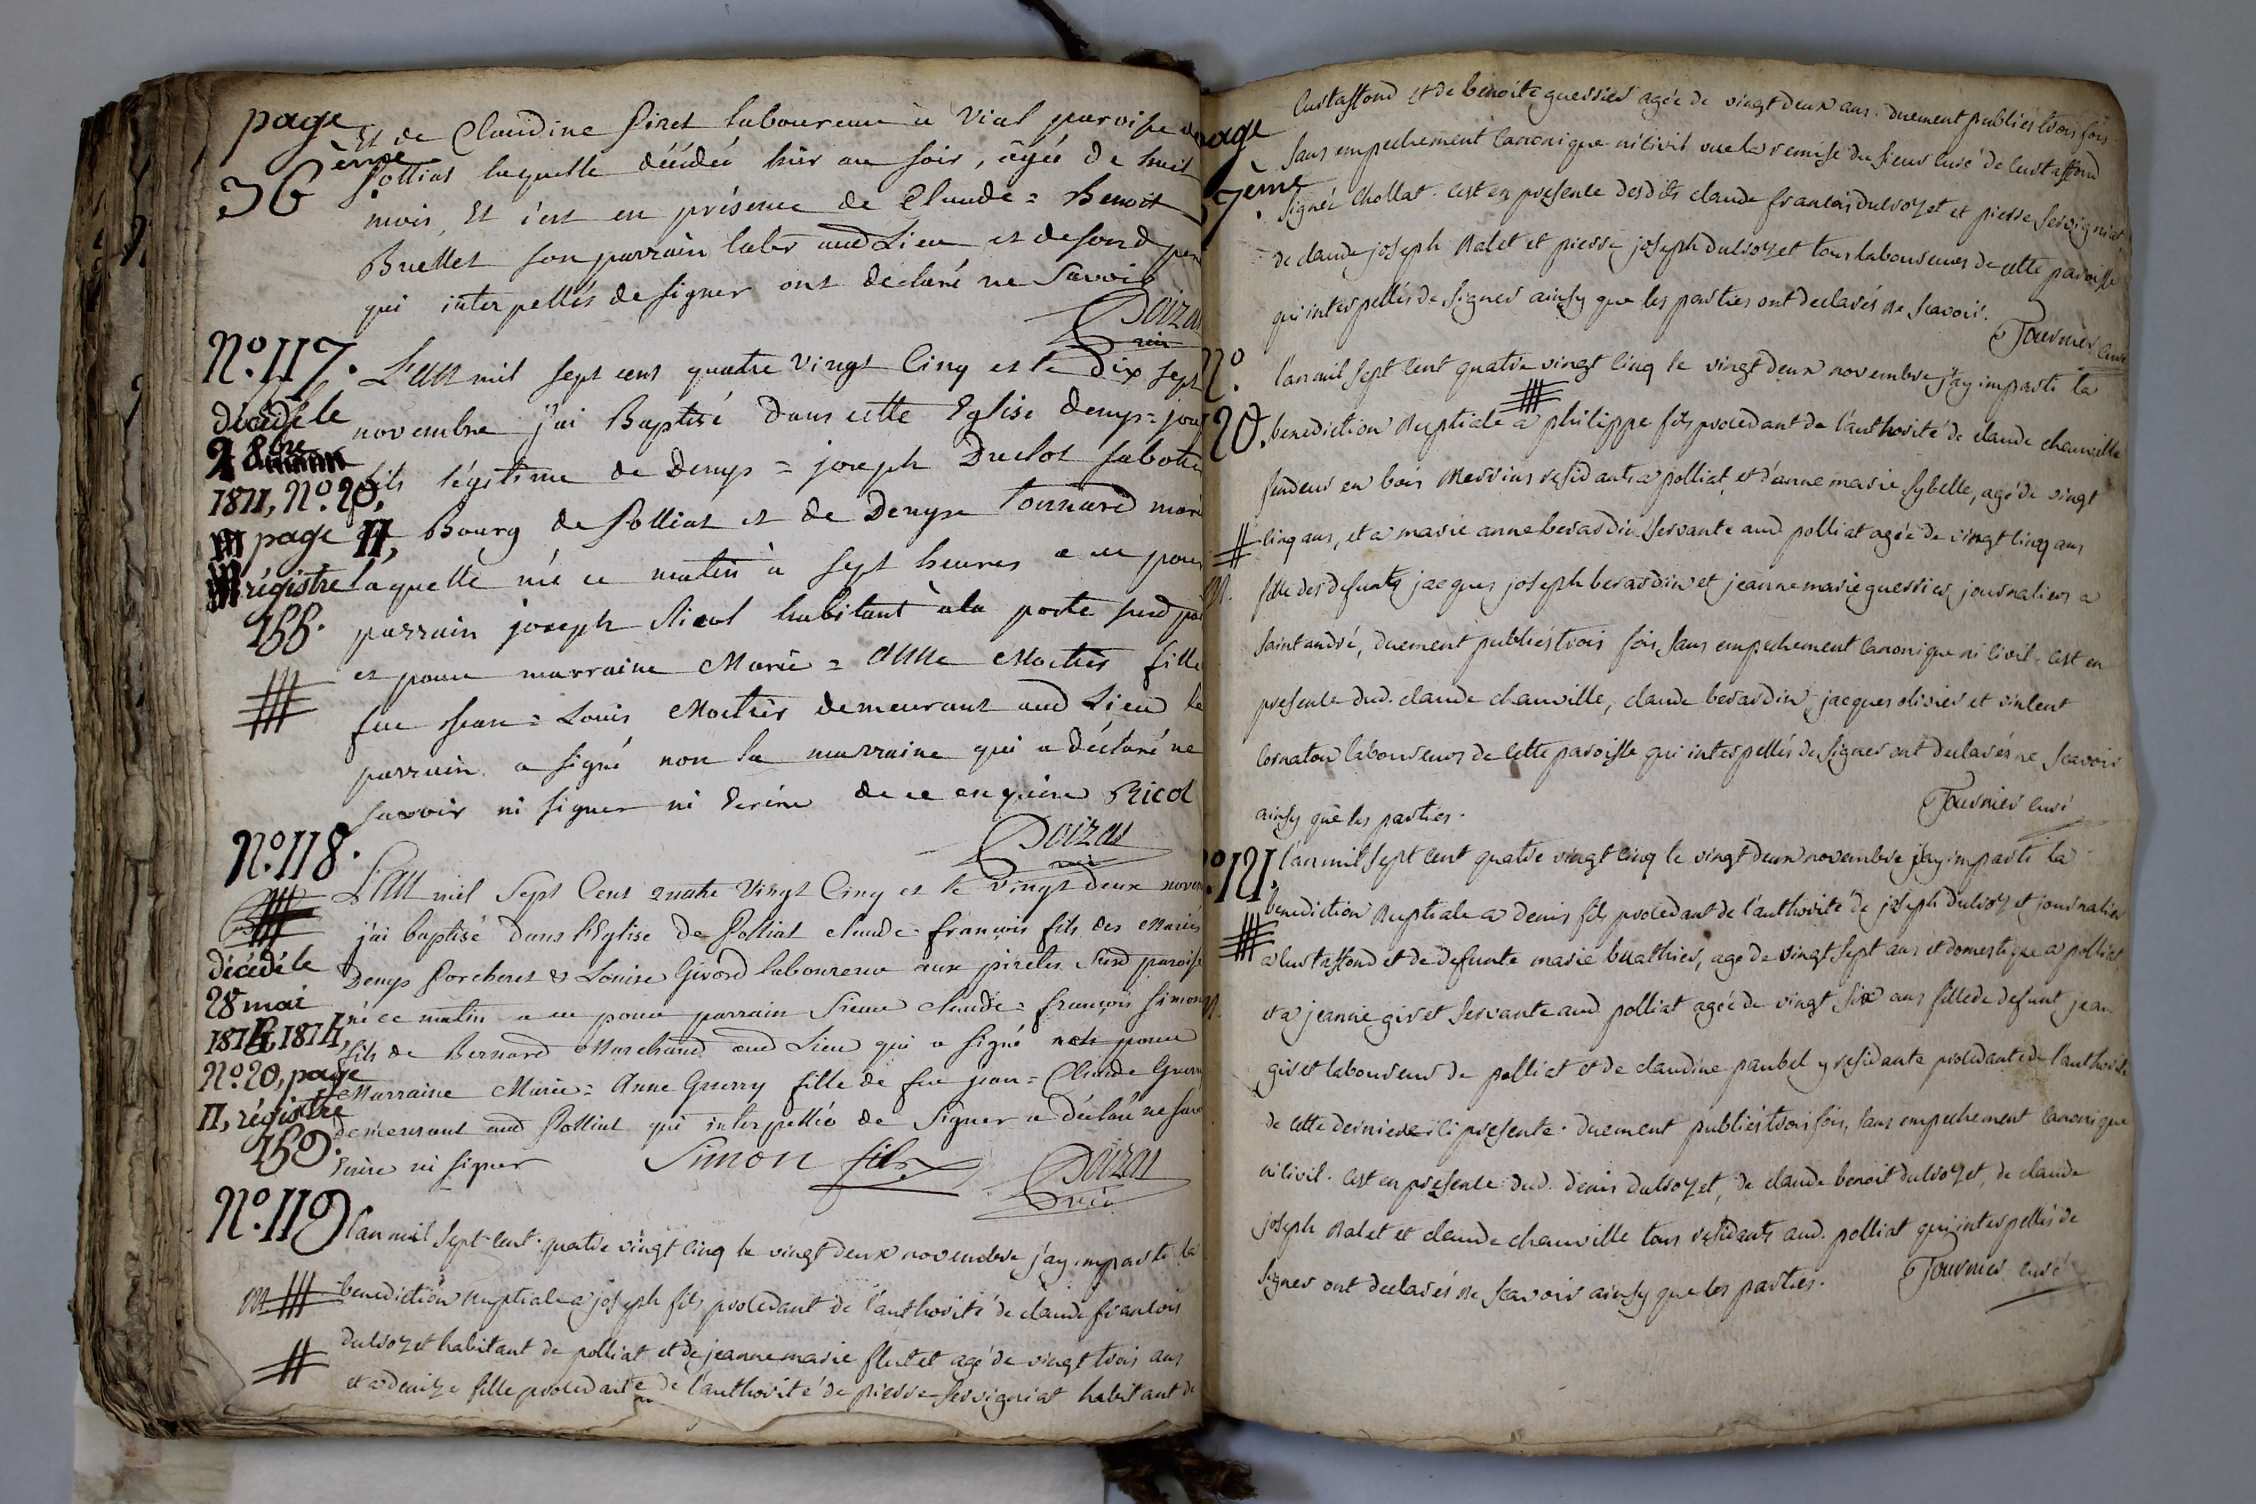 page
36 ème
Et de Claudine Piret laboureur à Vial paroisse de
Polliat laquelle décédée hier au soir, âgée de huit
mois, Et c'est en présence de Claude = Benoit
Buellet son parrain labr aud Lieu et de sond pere
qui interpellés de signer ont declaré ne Savoir
Doizat
vic
No. 117.
L'an mil sept cent quatre vingt Cinq et le dix sept
novembre j'ai Baptisé dans cette Eglise denys = josep
fils légitime de Denys = joseph Duclot sabotie
Bourg de Polliat et de Denyse Tournard marié
laquelle né ce matin à sept heures a eu pour
parrain joseph Ricol habitant à la poste sud par
et pour marraine Marie = Anne Mortier fille
feu Jean = Louis Mortier demeurant aud Lieu le
parrain a signé non la marraine qui a déclaré ne
savoir ni signer ni Ecrire de ce enquise Ricol
Doizat
vic
décédé le
1811, No. 20,
page 11,
régistre
155.
No. 118.
L'an mil Sept Cent quatre Vingt Cinq et le vingt deux novem
j'ai baptisé dans l'Eglise de Polliat claude = françois fils des Mariés
Denys Porcheret & Louise Givord laboureur aux pirets Susd paroisse
né ce matin a eu pour parrain Sieur claude = françois Simon
fils de Bernard Marchand aud Lieu qui a signé et pour
Marraine Marie = Anne Guerry fille de feu jean = Claude Guerry
demeurant aud Polliat qui interpellée de Signer a déclaré ne Savo
Ecrire ni signer
Simon fils
Doizat
vic
décédé le
28 mai
1814,
No. 20, page
11, régistre
159.
No. 119
l'an mil sept cent quatre vingt cinq le vingt deux novembre j'ay imparti la
m
benediction nuptiale a joseph fils procedant de l'authorité de claude francois
dulvozet habitant de polliat et de jeanne marie flutet agé de vingt trois ans
et a denize fille procedante de l'authorité de pierre servigniat habitant de
page
7ème
Curtaffond et de benoite guerrier agée de vingt deux ans. duement publiés trois fois
sans empechement canonique ni civil vue la remise du sieur curé de Curtaffond
signée Chollat. c'est en presente desdits claude francois dulvozet et pierre servigniat
de claude joseph Ralet et pierre joseph dulvozet tous laboureurs de cette paroisse
qui interpellés de signer ainsy que les parties ont declarés ne scavoir.
Tournier curé
No.
20.
l'an mil sept cent quatre vingt cinq le vingt deux novembre j'ay imparti la
benediction nuptiale a philippe fils procedant de l'authorité de claude chanville
fendeur en bois Merrins residants a polliat et d'anne marie sybelle, agé de vingt
cinq ans, et a marie anne berardin servante aud polliat agée de vingt cinq ans
m.
fille des defunts jacques joseph berardin et jeanne marie guerrier journaliers a
saint andré, duement publiés trois fois sans empechement canonique ni civil. c'est en
presente dud. claude chanville, claude berardin, jacques olivier et vincent
cornaton laboureurs de cette paroisse qui interpellés de signer ont declarés ne scavoir
ainsy que les parties.
Tournier curé
o. 121.
l'an mil sept cent quatre vingt cinq le vingt deux novembre j'ay imparti la
benediction nuptiale a denis fils procedant de l'authorité de joseph dulvozet journalier
a Curtaffond et de defunte marie buathier, agé de vingt sept ans et domestique a polliat
et a jeanne givet servante aud polliat agée de vingt six ans fille de defunt jean
givet laboureur de polliat et de claudine paubel y residante procedante de l'authorité
de cette derniere ici presente. duement publiés trois fois, sans empechement canonique
ni civil. c'est en presente dud. denis dulvozet, de claude benoit dulvozet, de claude
joseph Ralet et claude chanville tous residants aud. polliat qui interpellés de
signer ont declarés ne scavoir ainsy que les parties.
Tournier curé